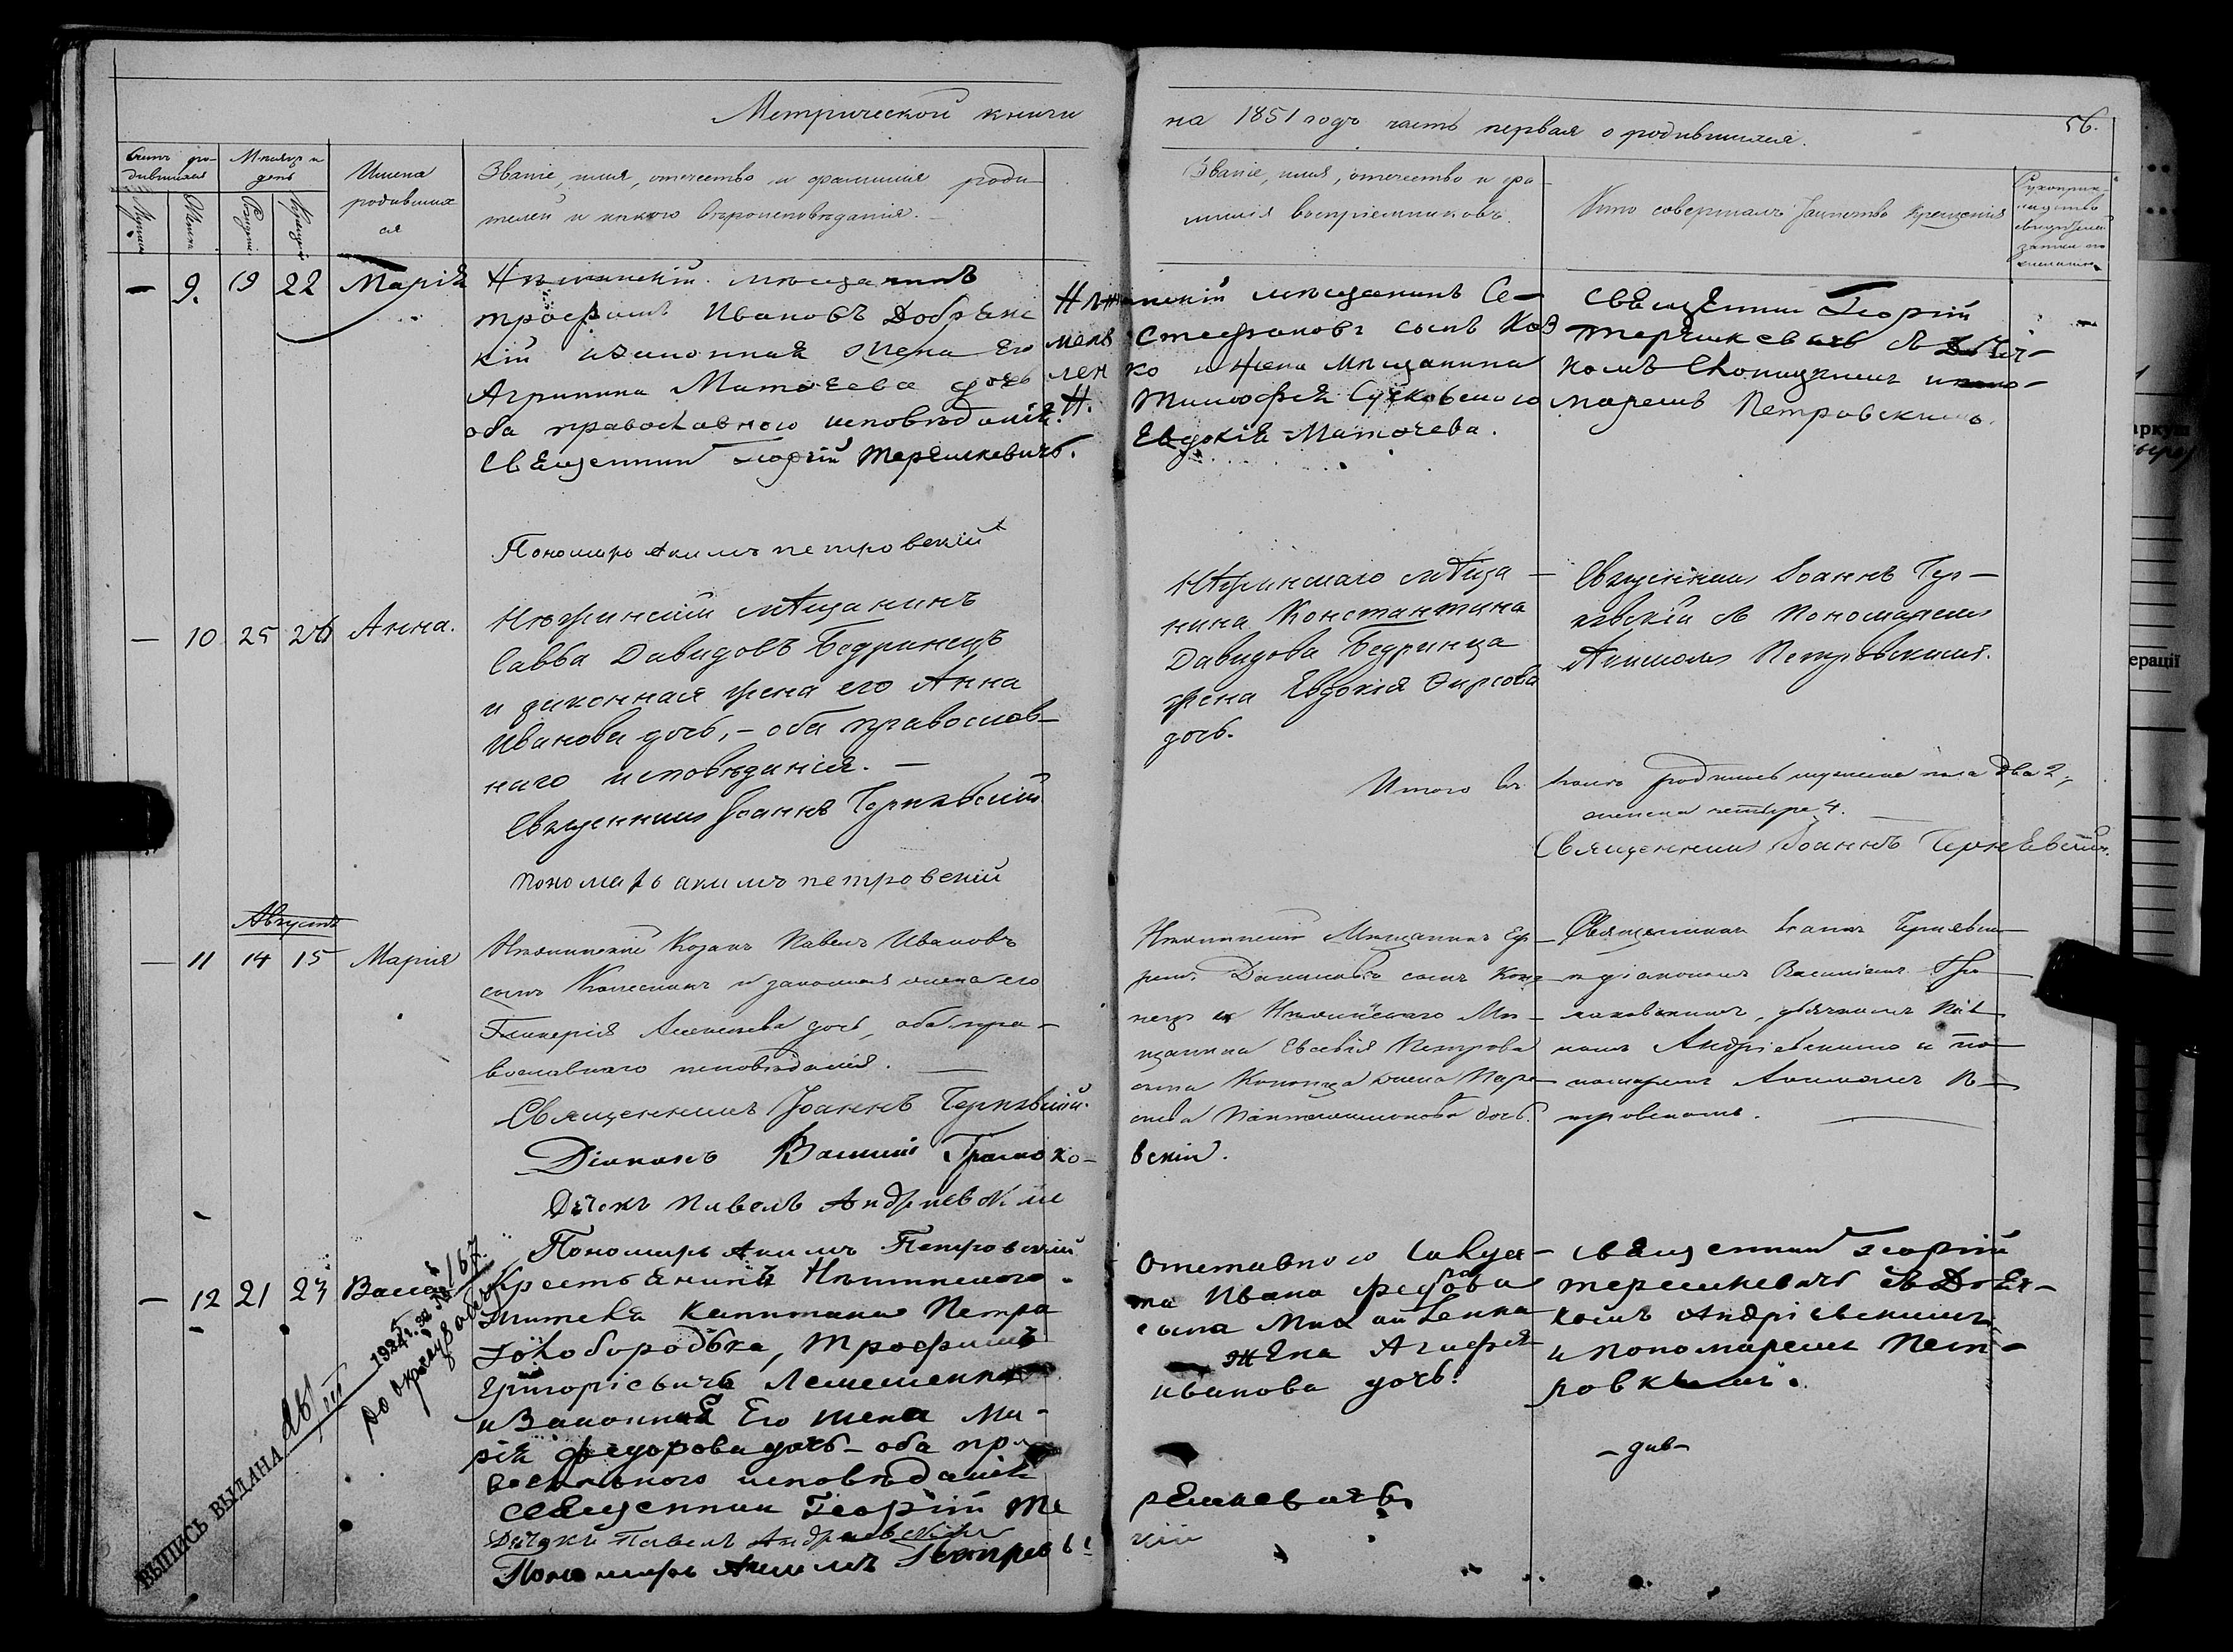 Метрической книги
на 1851 годъ часть первая о родившихся.
56.
Счетъ ро-
дившихся
Мѣсяцъ и
день
Имена
родивших
ся
Званіе, имя, отчество и фамилія роди-
телей и какого вѣроисповѣданія.
Званіе, имя, отчество и фа-
милія воспріемниковъ.
Кто совершалъ таинство крещенія
Рукоприк
ладство
свидѣтелей
записи по
желанію
— 9. 19 22 Марія
Нѣжинскій мѣщанинъ
трофимъ Ивановъ Добрянс
кій изаконная жена Его
Агрипина Матѳѣева дочь
оба православного исповѣданія.
Священникъ Георгій терешкевичъ.
Пономарь Акимъ петровскій
Нѣжинскій мѣщанинъ Се-
менъ Стефановъ сынъ Коз
ленко и жена мѣщанина
Н. тимофея Сучковского
Евдокія Матѳѣева.
священникъ Георгій
терешкевичъ съ Дьяч-
комъ и поно-
маремъ Петровскимъ.
— 10 25 26 Анна.
Нѣжинскій мѣщанинъ
Савва Давидовъ Бедринецъ
и законная жена его Анна
Иванова дочь, – оба православ-
наго исповѣданія. —
Священникъ Іоаннъ Чернявскій
пономарь акимъ петровскій
Нѣжинскаго мѣща-
нина Константина
Давидова Бедринца
жена Евдокія Фирсова
дочь.
Священникъ Іоаннъ Чер-
нявскій съ Пономаремъ
Акимомъ Петровскимъ.
Итого въ іюлѣ родилось мужеска пола два 2,
женска четыре 4.
Священникъ Іоаннъ Чернявскій.
Августъ
— 11 14 15 Марія
Нѣжинскій Козакъ Павелъ Ивановъ
сынъ Колесникъ и законная жена его
Гликерія Алексѣева дочь, оба пра-
вославнаго исповѣданія. —
Священникъ Іоаннъ Чернявскій.
Діаконъ Василій Громако-
вскій.
Дячокъ Павелъ Андриевский
Пономарь Акимъ Петровскій
Нѣжинскій Мѣщанинъ Еф-
ремъ Даниловъ сынъ Коно
пецъ и Нѣжинскаго Мѣ-
щанина Евсевія Петрова
сына Конопца жена Пара-
скева Пантелимонова дочь.
Священникъ Іоаннъ Чернявскій
съ діакономъ Василіемъ Гро-
маковскимъ, дьячкомъ Пав
ломъ Андріевскимъ и по-
номаремъ Акимомъ Пе-
тровскимъ.
— 12 21 23 Васса
Крестьянинъ Нѣжинского
жителя капитана Петра
Голобородька, трофимъ
Григоріевичъ Лемешенко
и Законная Его жена Ма-
рія Федорова дочь – оба пра
вославного исповѣданія
священникъ Георгій те
решкевичъ.
Дячокъ Павелъ Андриевский
Пономарь Акимъ Петровс
кій
Отставного Солда-
та Ивана федорова
сына Михайленка
жена Агафія
иванова дочь.
священникъ Георгій
терешкевичъ съ Дьяч-
комъ Андріевскимъ
и пономаремъ Пет-
ровскимъ.
ВЫПИСЬ ВЫДАНА
1925 г. за № 167.